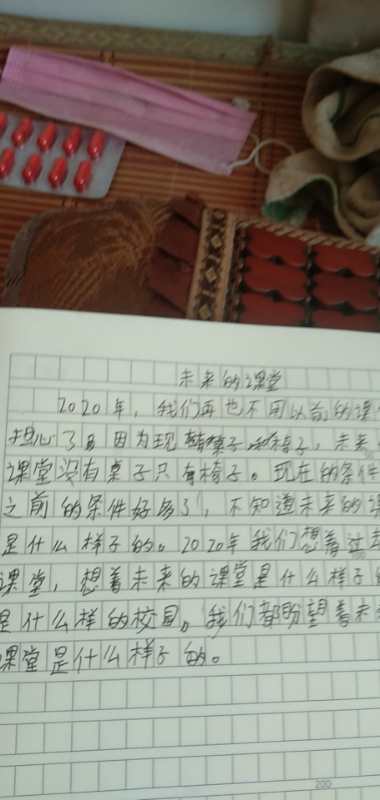 未来的课堂
2020年，我们再也不用以前的课
担心了 因为现 桌子 椅子，未来
课堂没有桌子只有椅子。现在的条件
之前的条件好多了，不知道未来的课
是什么样子的。2020年我们想着过去
课堂，想着未来的课堂是什么样子
是什么样的校园。我们都盼望着未
课堂是什么样子的。
200